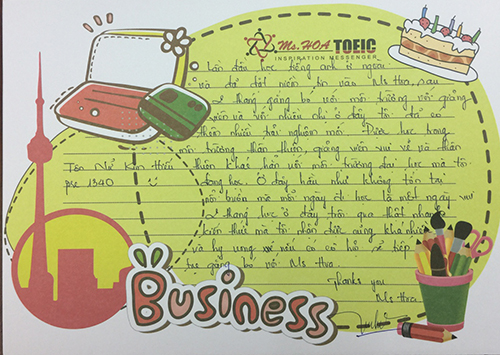 Ms.HOA TOEIC
INSPIRATION MESSENGER
Lần đầu học tiếng anh ở ngoài
và đã đặt niềm tin vào Ms Hoa, sau
2 tháng gắng bó với môi trường với giảng
viên và với nhiều chị ở đây tôi đã có
thêm nhiều trải nghiệm mới. Được học trong
môi trường thân thiện, giảng viên vui vẻ và thân
thiện khác hẳn với môi trường đại học mà tôi
đang học. Ở đây hầu như không tồn tại
nỗi buồn mà mỗi ngày đi học là một ngày vui
2 tháng học ở đây trôi qua thật nhanh
kiến thức mà tôi nhận được cũng khá nhiều
và hy vọng nếu có cơ hội sẽ tiếp
tục gắng bó với Ms Hoa.
Thank you
Ms Hoa
Tôn Nữ Kim Hiếu
pre 1340
Business